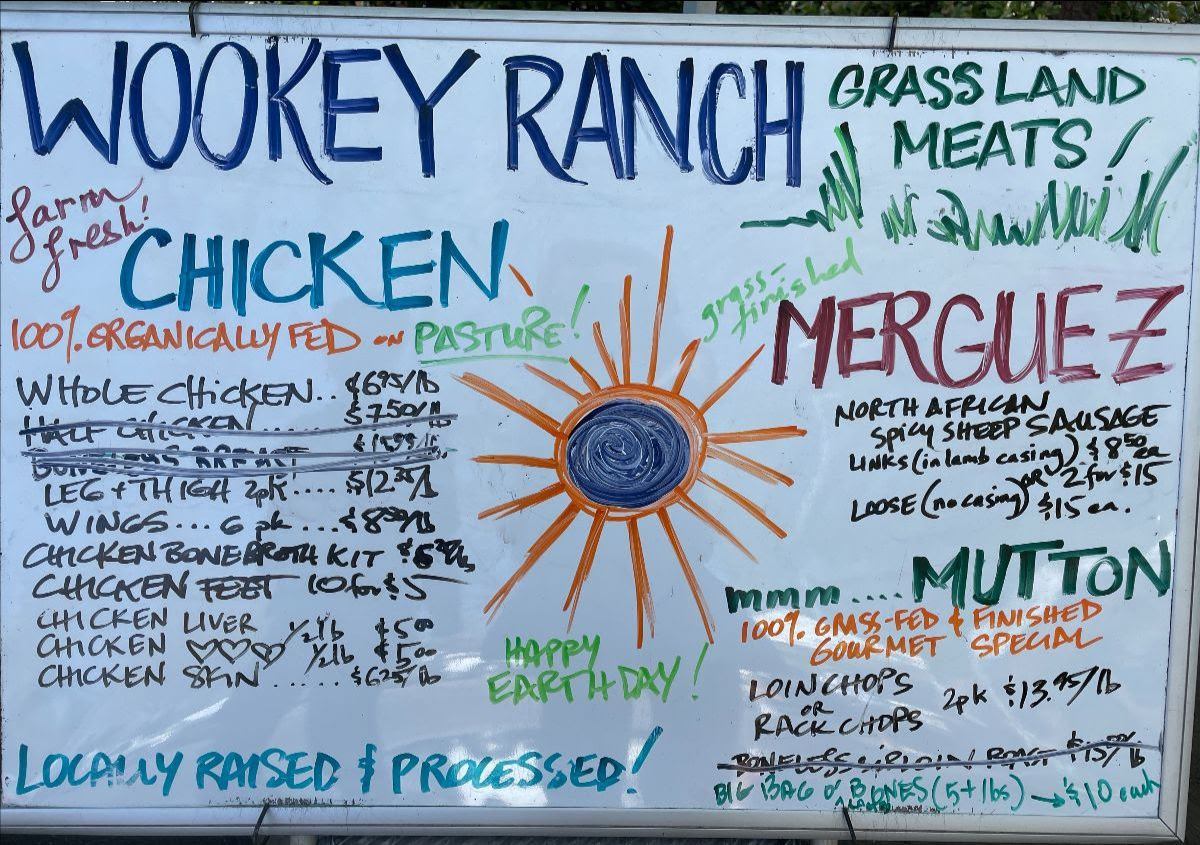 WOOKEY RANCH
GRASSLAND
MEATS!
farm
fresh!
CHICKEN
100% ORGANICALLY FED on PASTURE!
WHOLE CHICKEN.. $6.95/lb
HALF CHICKEN...... $7.50/lb
BONELESS BREAST
LEG + THIGH 2pk.... $12
WINGS... 6 pk ... $8.50/lb
CHICKEN BONE BROTH KIT
CHICKEN FEET 10 for $5
CHICKEN LIVER 1/2 lb $5.00
CHICKEN ♡♡♡ 1/2 lb $5.00
CHICKEN SKIN ...... $6.25/lb
LOCALLY RAISED & PROCESSED!
HAPPY
EARTH DAY!
grass-
finished
MERGUEZ
NORTH AFRICAN
SPICY SHEEP SAUSAGE
LINKS (in lamb casing) $8.50 ea
OR 2 for $15
LOOSE (no casing) $15 ea.
mmm.... MUTTON
100% GRASS-FED & FINISHED
GOURMET SPECIAL
LOIN CHOPS
OR
RACK CHOPS
2pk $13.95/lb
BONELESS SIRLOIN ROAST
BIG BAG O' BONES (5+ lbs) → $10 each